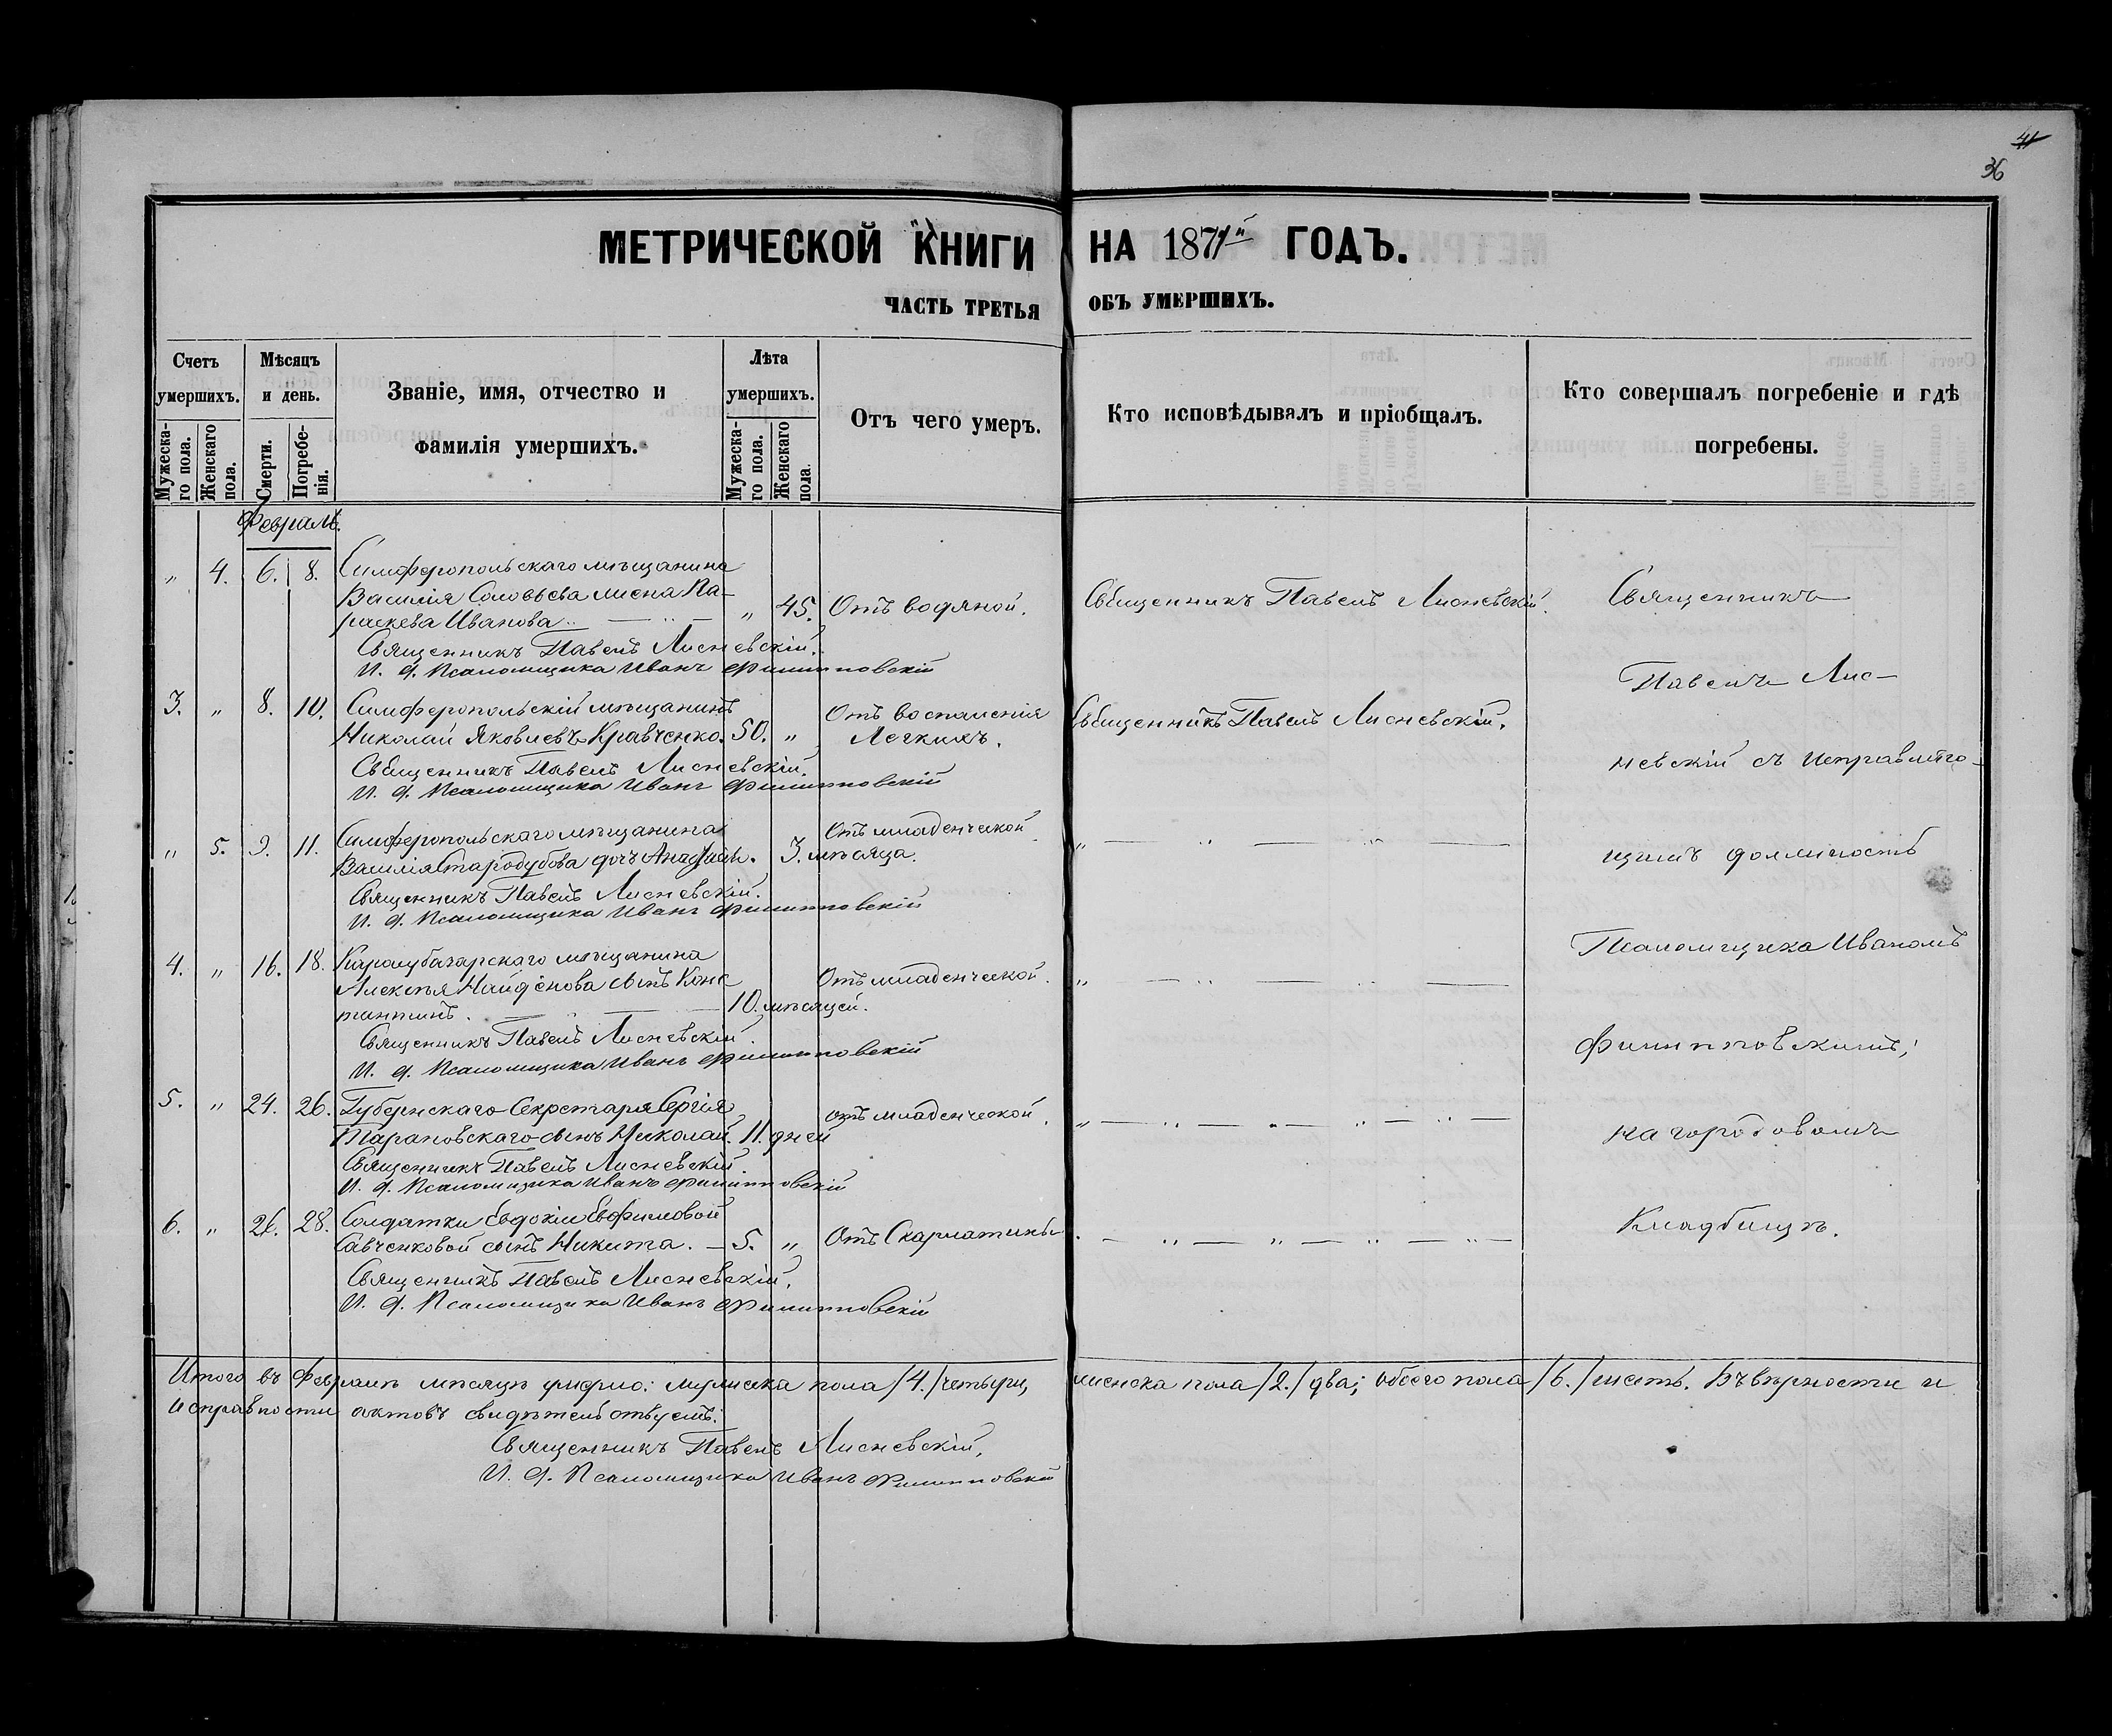 41
36
МЕТРИЧЕСКОЙ КНИГИ НА 1871й ГОДЪ.
ЧАСТЬ ТРЕТЬЯ ОБЪ УМЕРШИХЪ.
Счетъ умершихъ.
Мужеска-го пола.
Женскаго пола.
Мѣсяцъ и день.
Смерти.
Погребе-нія.
Званіе, имя, отчество и
фамилія умершихъ.
Лѣта умершихъ.
Мужеска-го пола.
Женскаго пола.
Отъ чего умеръ.
Кто исповѣдывалъ и пріобщалъ.
Кто совершалъ погребеніе и гдѣ
погребены.
Февраль.
„ 4. 6. 8. Симферопольскаго мѣщанина
Василія Соловьева жена Па-
раскева Иванова „ 45. Отъ водяной. Священникъ Павелъ Лисневскій.
Священникъ Павелъ Лисневскій.
И. д. Псаломщика Иванъ Филипповскій
3. „ 8. 10. Симферопольскій мѣщанинъ
Николай Яковлевъ Кравченко. 50. „ Отъ воспаленія
Легкихъ. Священникъ Павелъ Лисневскій.
Священникъ Павелъ Лисневскій.
И. д. Псаломщика Иванъ Филипповскій
„ 5. 9. 11. Симферопольскаго мѣщанина
Василія Стародубова дочь 3. мѣсяца. Отъ младенческой
Священникъ Павелъ Лисневскій.
И. д. Псаломщика Иванъ Филипповскій
4. „ 16. 18. Карасубазарскаго мѣщанина
Алексѣя Найденова сынъ Конс
тантинъ. 10. мѣсяцей. Отъ младенческой.
Священникъ Павелъ Лисневскій.
И. д. Псаломщика Иванъ Филипповскій
5. „ 24. 26. Губернскаго Секретаря Сергія
Тарановскаго сынъ Николай. 11. дней Отъ младенческой.
Священникъ Павелъ Лисневскій.
И. д. Псаломщика Иванъ Филипповскій
6. „ 26. 28. Солдатки Евдокіи Ефимовой
Савченковой сынъ Никита. 5. „ Отъ Скарлатины
Священникъ Павелъ Лисневскій.
И. д. Псаломщика Иванъ Филипповскій
Священникъ
Павелъ Лис-
невскій съ исправляю-
щимъ должность
Псаломщика Иваномъ
Филипповскимъ;
на городовомъ
Кладбищѣ.
Итого въ Февралѣ мѣсяцѣ умерло: мужеска пола /4./ четыри, женска пола /2./ два; обоего пола /6./ шесть. Въ вѣрности и
исправности актовъ свидѣтельствуемъ:
Священникъ Павелъ Лисневскій,
И. д. Псаломщика Иванъ Филипповскій